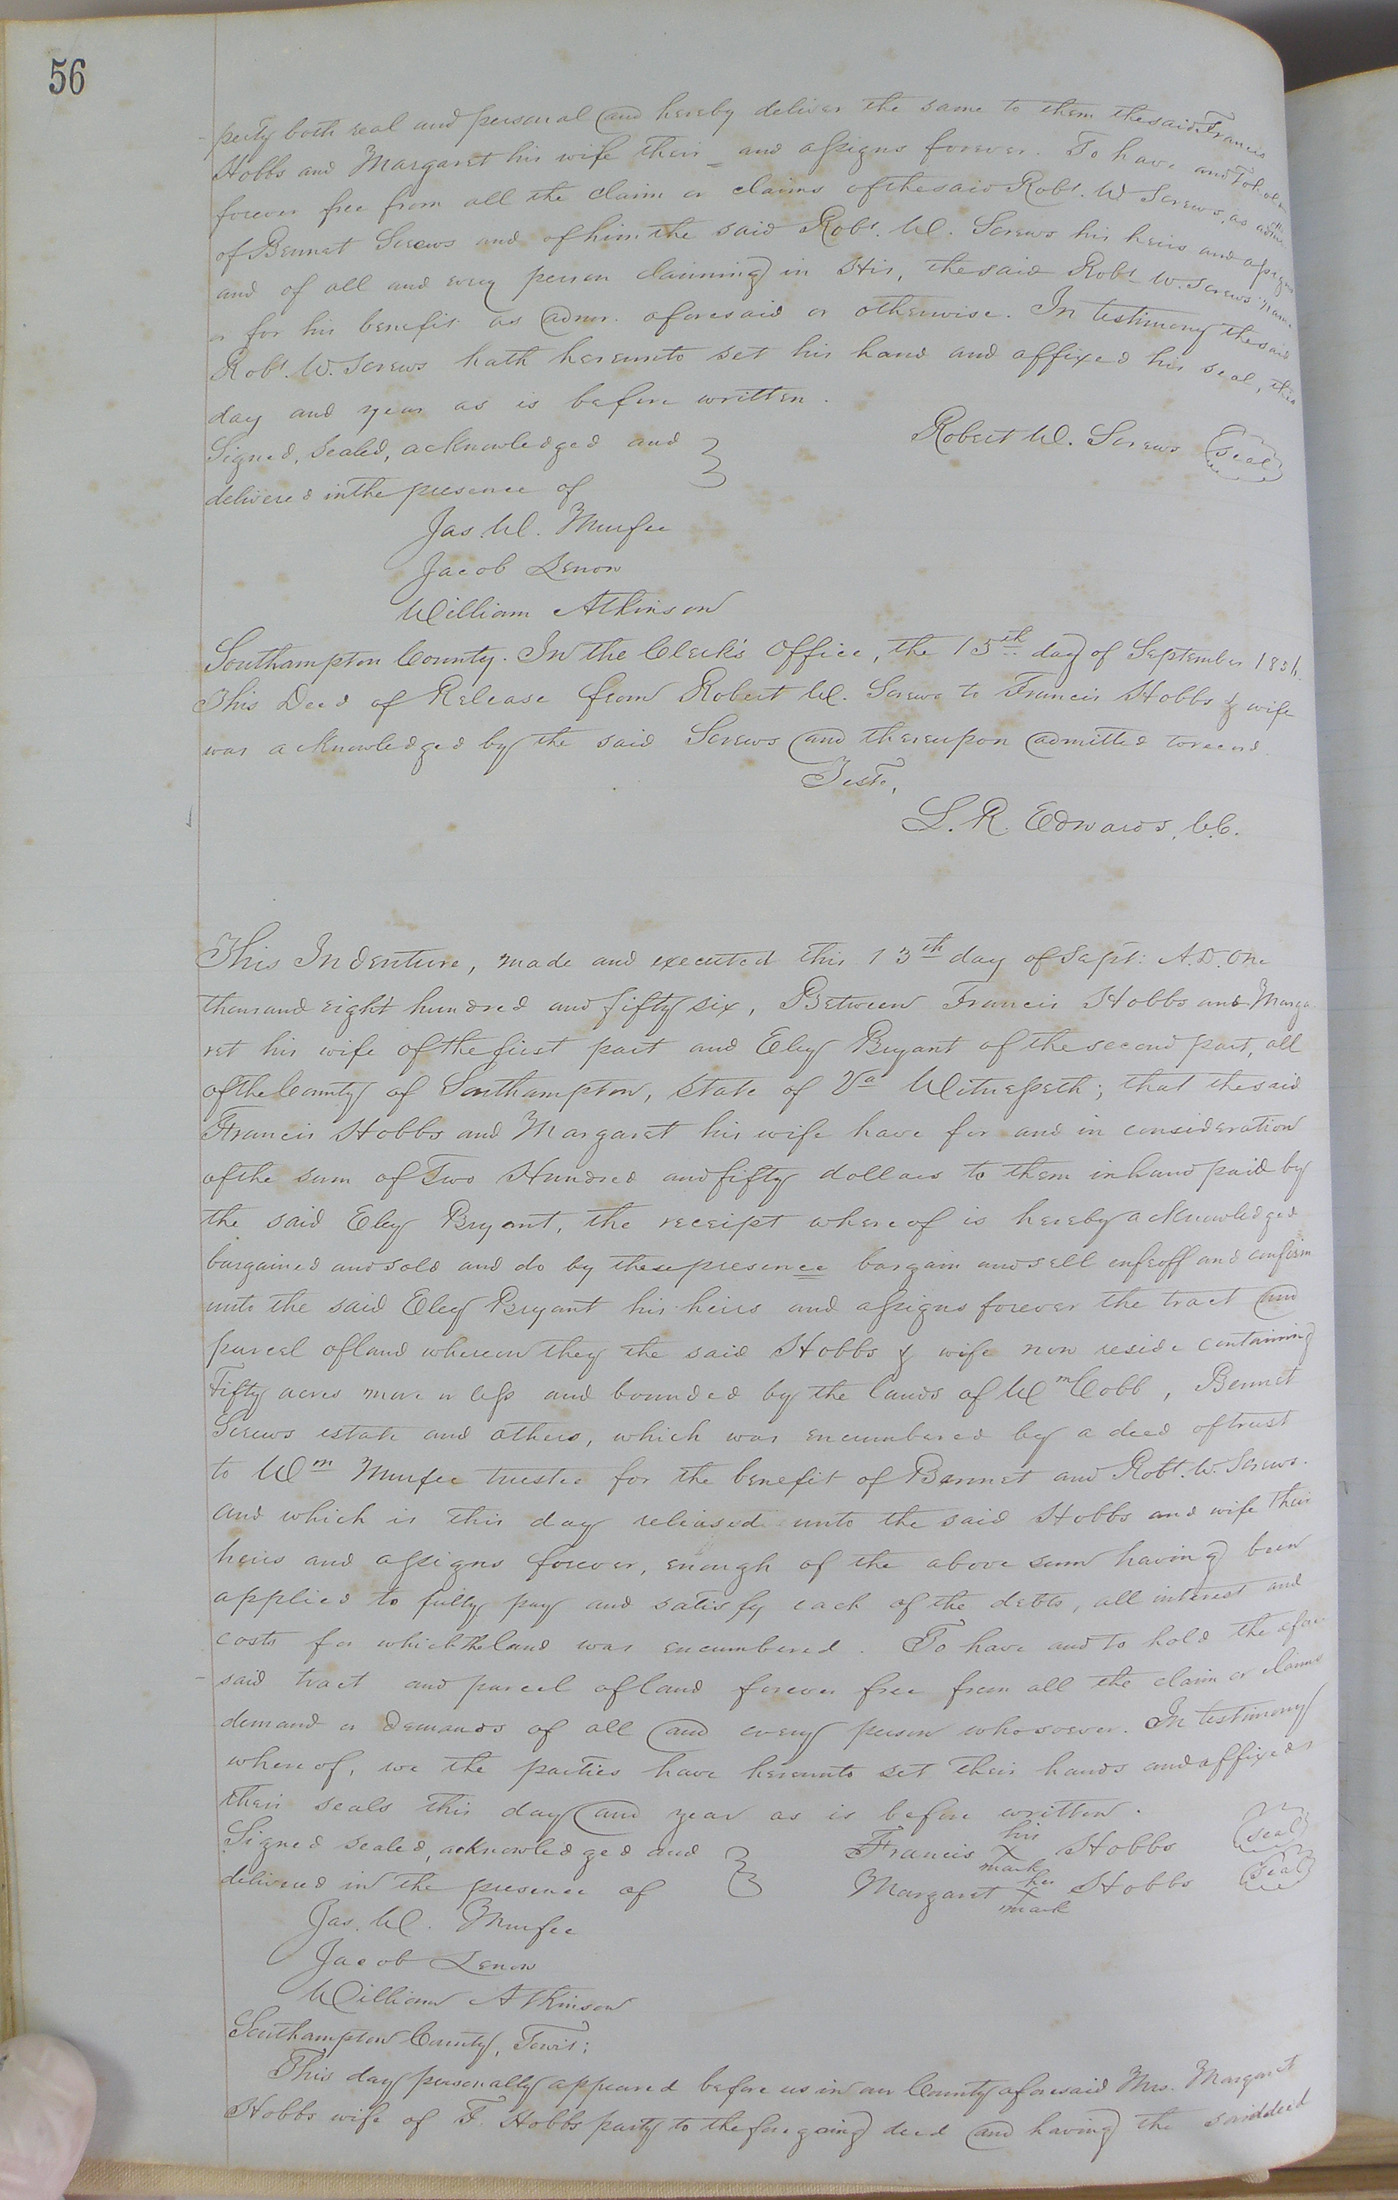 56
perty both real and personal and hereby deliver the same to them the said Francis
Hobbs and Margaret his wife their = and assigns forever. To have and to hold
forever free from all the claim or claims of the said Robt. W Screws, as admr.
of Bennet Screws and of him the said Robt. W. Screws his heirs and assigns
and of all and every person claiming in His, the said Robt W. Screws name
or for his benefit as admr. aforesaid or otherwise. In testimony the said
Robt. W. Screws hath hereunto set his hand and affixed his seal, the
day and year as is before written.
Signed, Sealed, acknowledged and Robert W. Screws seal
delivered in the presence of
Jas. W. Murfee
Jacob Lenow
William Atkinson
Southampton County. In the Clerk's Office, the 15th day of September 1856.
This Deed of Release from Robert W. Screws to Francis Hobbs & wife
was acknowledged by the said Screws and thereupon admitted to record.
Teste,
L. R. Edwards, C.C.
This Indenture, made and executed this 13th day of Sept: A.D. One
thousand eight hundred and fifty six, Between Francis Hobbs and Marga
ret his wife of the first part and Eley Bryant of the second part, all
of the County of Southampton, State of Va Witnesseth; that the said
Francis Hobbs and Margaret his wife have for and in consideration
of the sum of Two Hundred and fifty dollars to them in hand paid by
the said Eley Bryant, the receipt whereof is hereby acknowledged
bargained and sold and do by these presence bargain and sell enfeoff and confirm
unto the said Eley Bryant his heirs and assigns forever the tract and
parcel of land whereon they the said Hobbs & wife now reside containing
Fifty acres more or less and bounded by the lands of Wm Cobb, Bennet
Screws estate and others, which was encumbered by a deed of trust
to Wm Murfee trustee for the benefit of Bennet and Robt. W. Screws.
and which is this day released unto the said Hobbs and wife their
heirs and assigns forever, enough of the above sum having been
applied to fully pay and satisfy each of the debts, all interest and
costs for which the land was encumbered. To have and to hold the afore
said tract and parcel of land forever free from all the claim or claims
demand or demands of all and every person whosoever. In testimony
whereof, we the parties have hereunto set their hands and affixed
their seals this day and year as is before written.
Signed sealed, acknowledged and Francis his X mark Hobbs seal
delivered in the presence of Margaret her X mark Hobbs seal
Jas. W. Murfee
Jacob Lenow
William Atkinson
Southampton County, Towit;
This day personally appeared before us in our County aforesaid Mrs. Margaret
Hobbs wife of F. Hobbs party to the foregoing deed and having the said deed